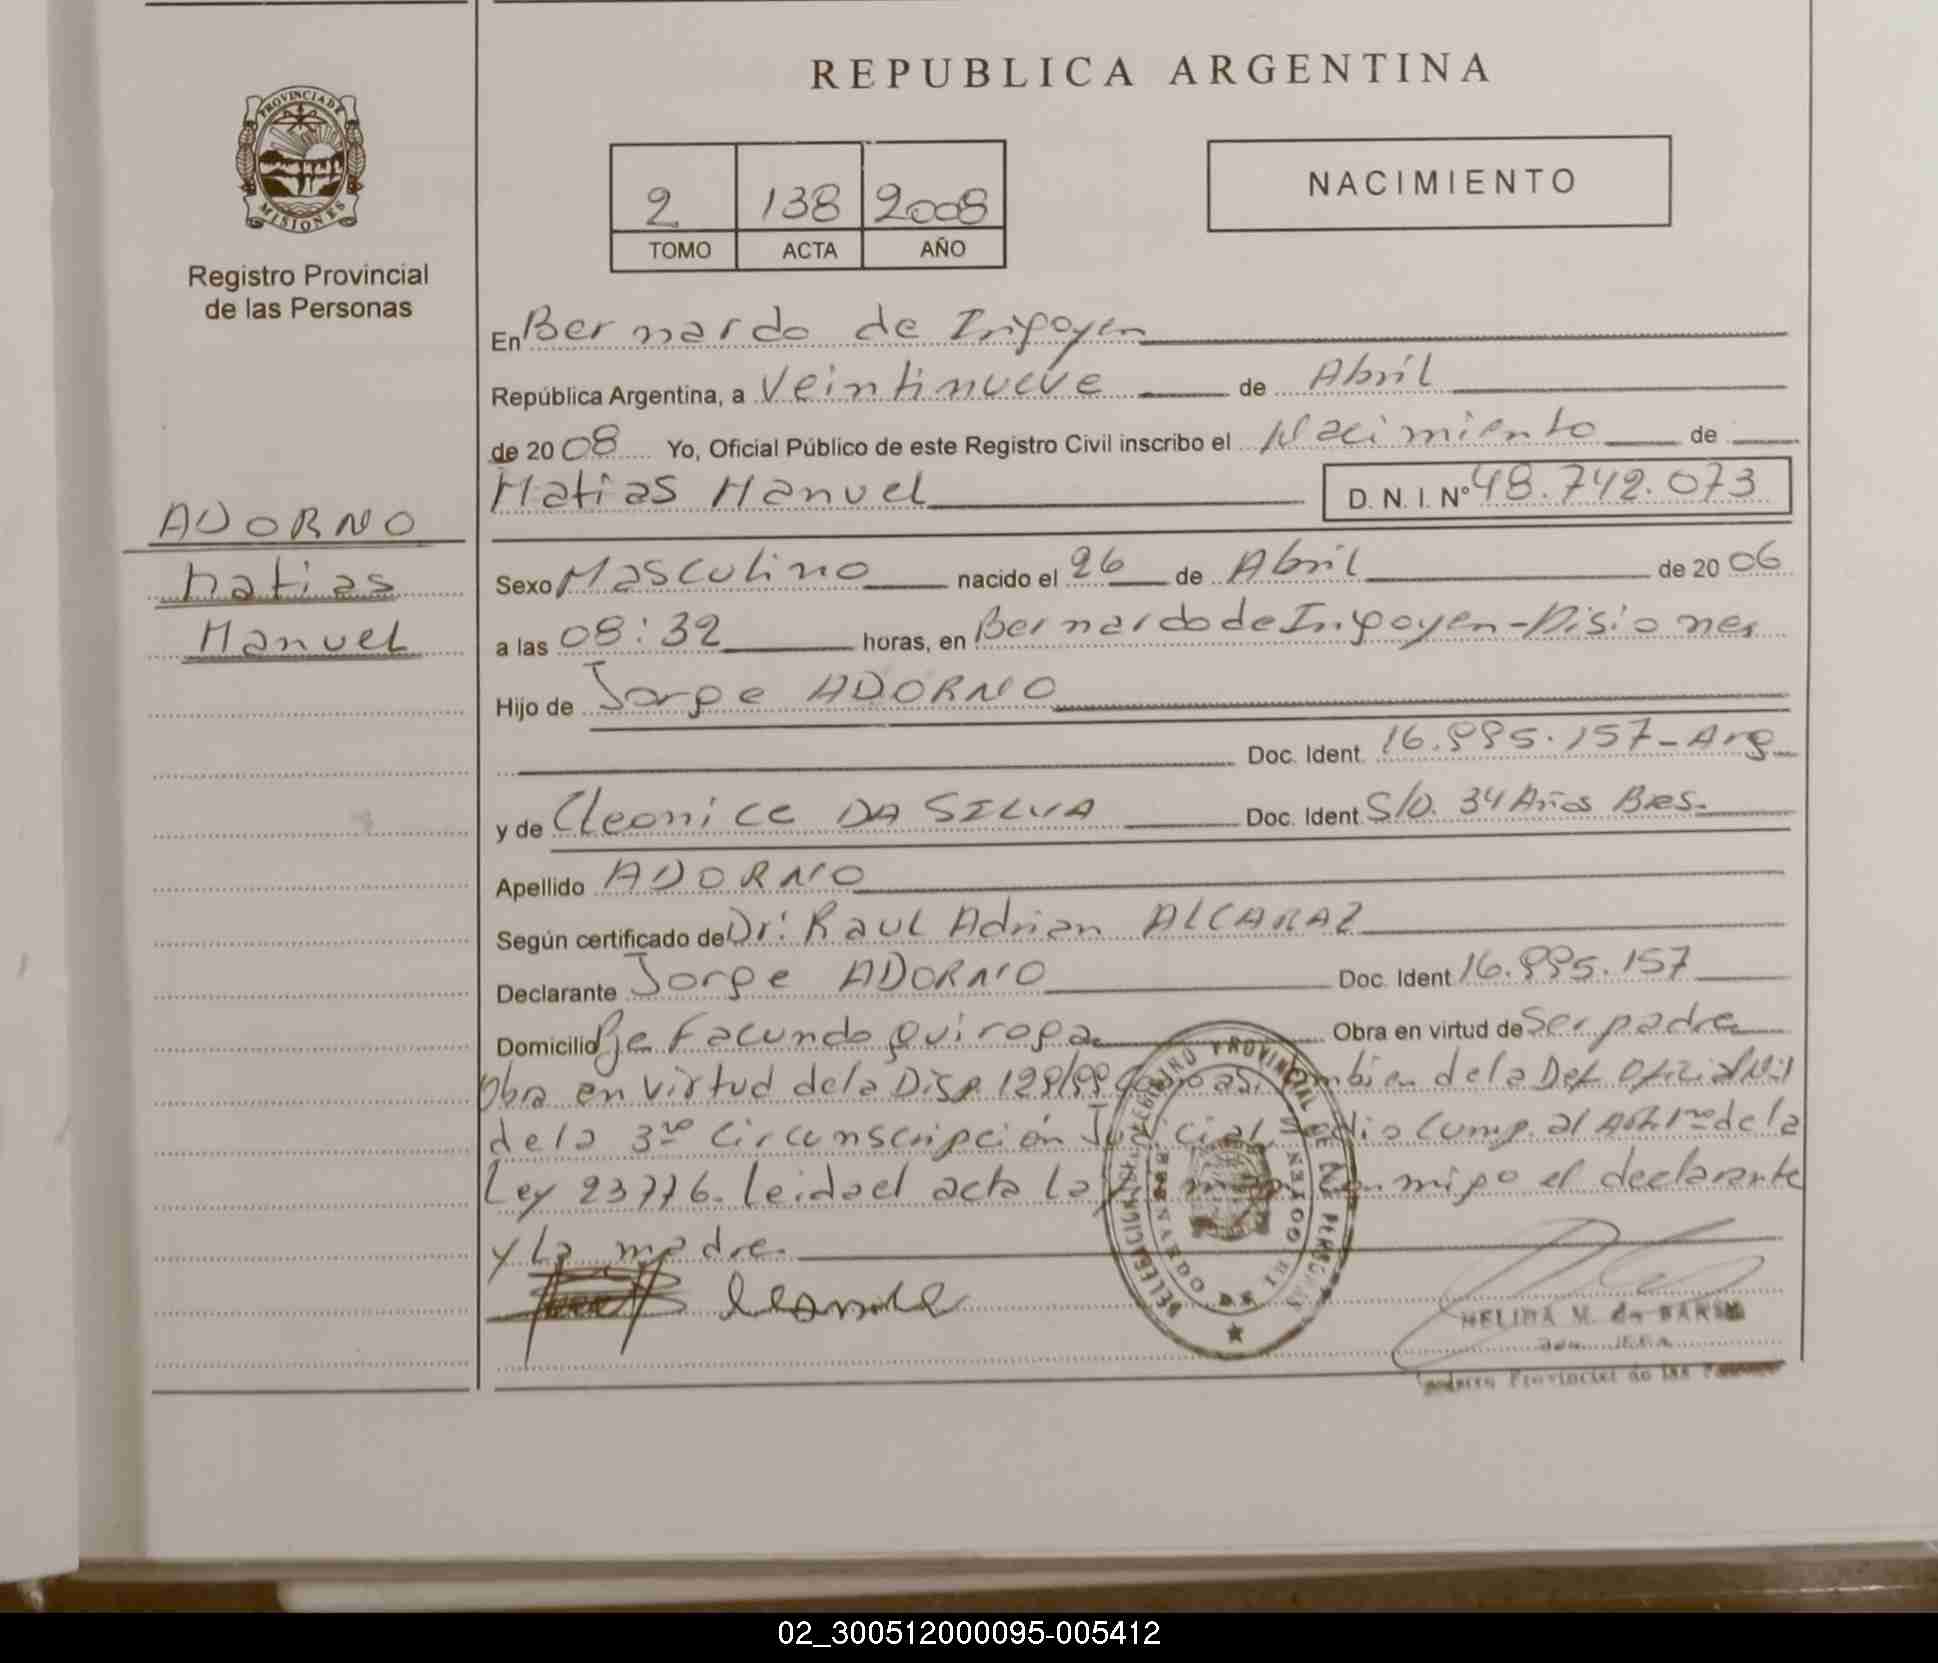 REPUBLICA ARGENTINA
PROVINCIA DE
MISIONES
Registro Provincial
de las Personas
2 138 2008
TOMO ACTA AÑO
NACIMIENTO
En Bernardo de Irigoyen
República Argentina, a Veintinueve de Abril
de 2008 Yo, Oficial Público de este Registro Civil inscribo el Nacimiento de
Matias Manuel D. N. I. Nº 48.742.073
ADORNO
Matias
Manuel
Sexo Masculino nacido el 26 de Abril de 2006
a las 08:32 horas, en Bernardo de Irigoyen-Misiones
Hijo de Jorge ADORNO
Doc. Ident. 16.995.157-Arg
y de Cleonice DA SILVA Doc. Ident. S/D. 34 Años Bras.
Apellido ADORNO
Según certificado de Dr: Raul Adrian ALCARAZ
Declarante Jorge ADORNO Doc. Ident 16.995.157
Domicilio Pje Facundo Quiroga Obra en virtud de Ser padre
Obra en virtud de la Disp. 129/99 Como asi tambien de la Def. Oficial Nº1
de la 3ra Circunscripción Judicial, dio Cump. al Art. 1ro de la
Ley 23776. Leida el acta la firman conmigo el declarante
y la madre.
Cleonice
DELEGACION REGISTRO PROVINCIAL DE LAS PERSONAS
BERNARDO DE IRIGOYEN
MELIDA M. de
Provincial de las Personas
02_300512000095-005412